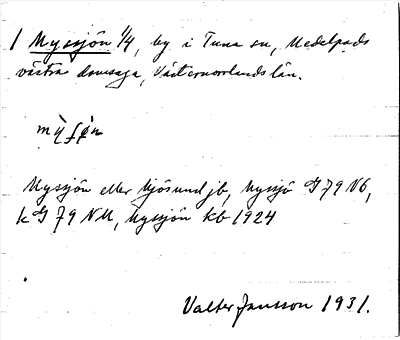 1 Myssjön 1/4, by i Tuna sn, Medelpads
västra domsaga, Västernorrlands län.
Myssjön eller Mjösund jb, Myssjö G 79 N6,
k G 79 NM, Myssjön kb 1924
Valter Jansson 1931.